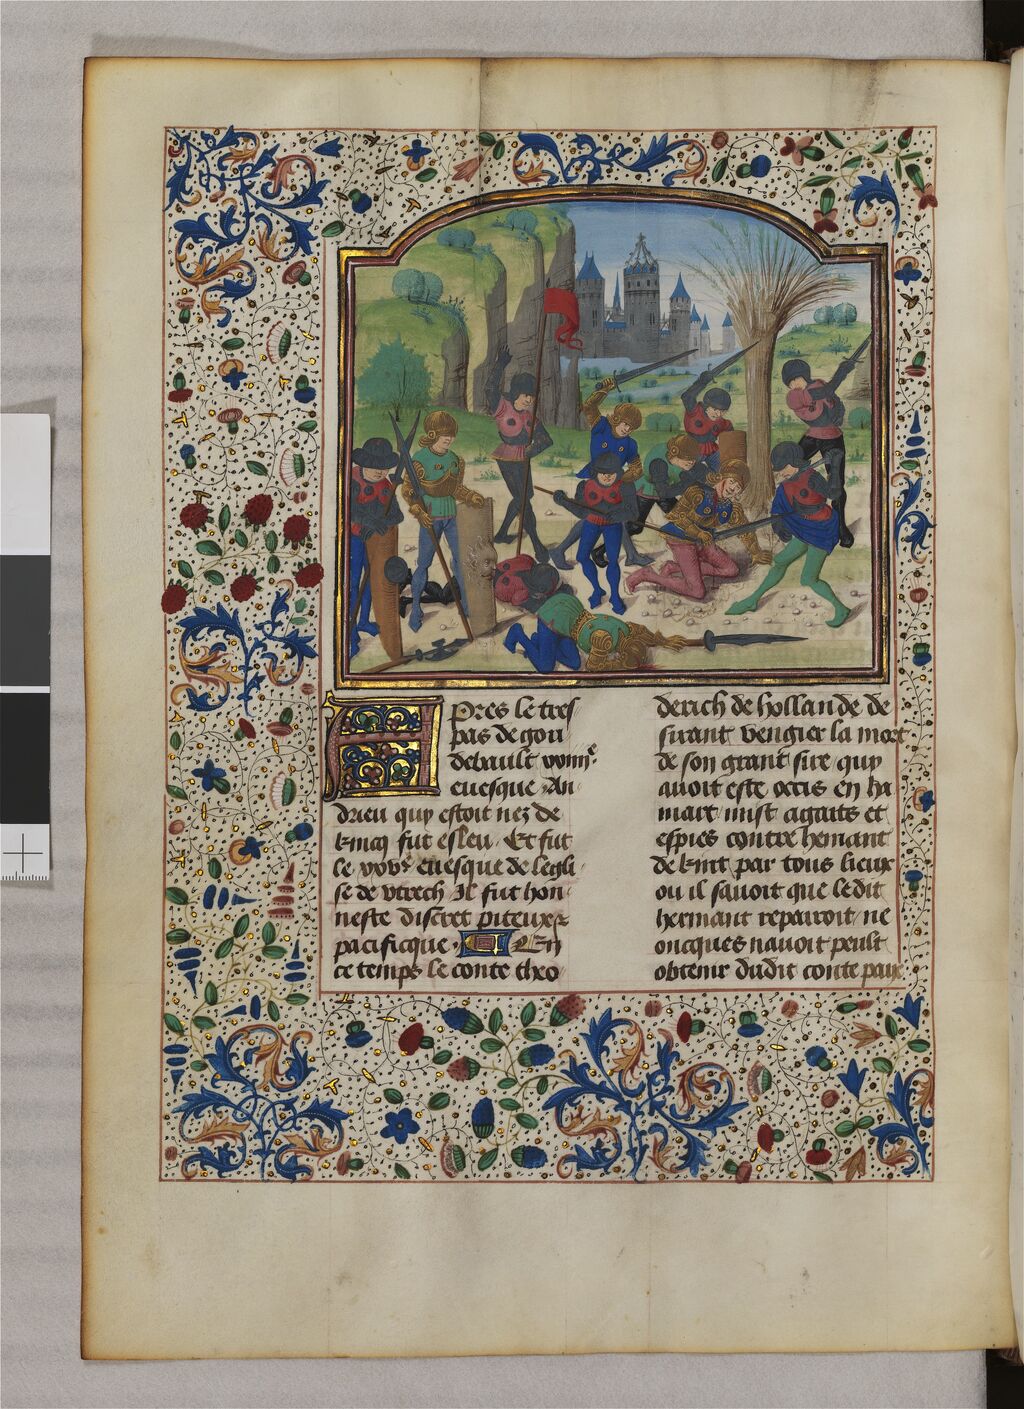 Apres le tres
pas de gou
debault vomẽ
euesque An
drieu quy estoit nez de
kuicq fut esleu. Et fut
le xxvẽ euesque de legli
se de vtrech Il fut hon
neste discret piteux et
pacificque En
ce temps le conte theo
derich de hollande de
sirant vengier la mort
de son grant sire quy
auoit este occis en ha
mart mist agaits et
espies contre hemant
de kuic par tous lieux
ou il sauoit que ledit
hermant repairoit ne
oncques nauoit peult
obtenir dudit conte paix